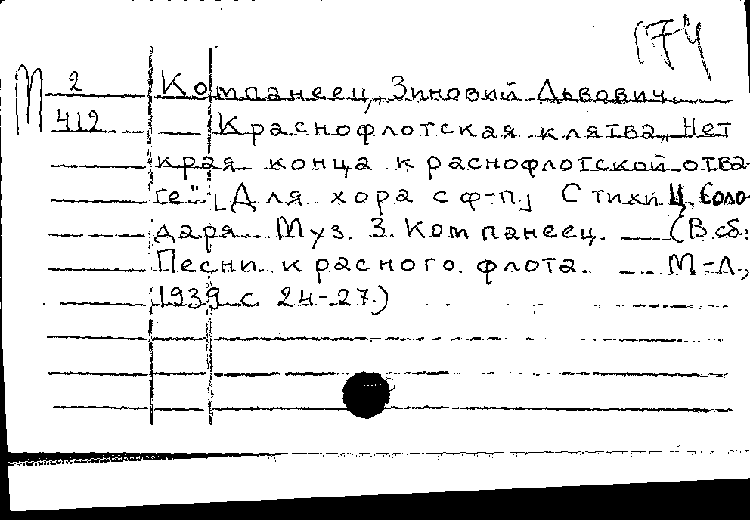 174
М 2
412
Компанеец, Зиновий Львович
Краснофлотская клятва „Нет
края конца краснофлотской отва-
ге" [Для хора с ф-п] Стихи Ц. Соло-
даря Муз. З. Компанеец. — (В сб:
Песни красного флота. — М-Л.,
1939 с 24-27.)